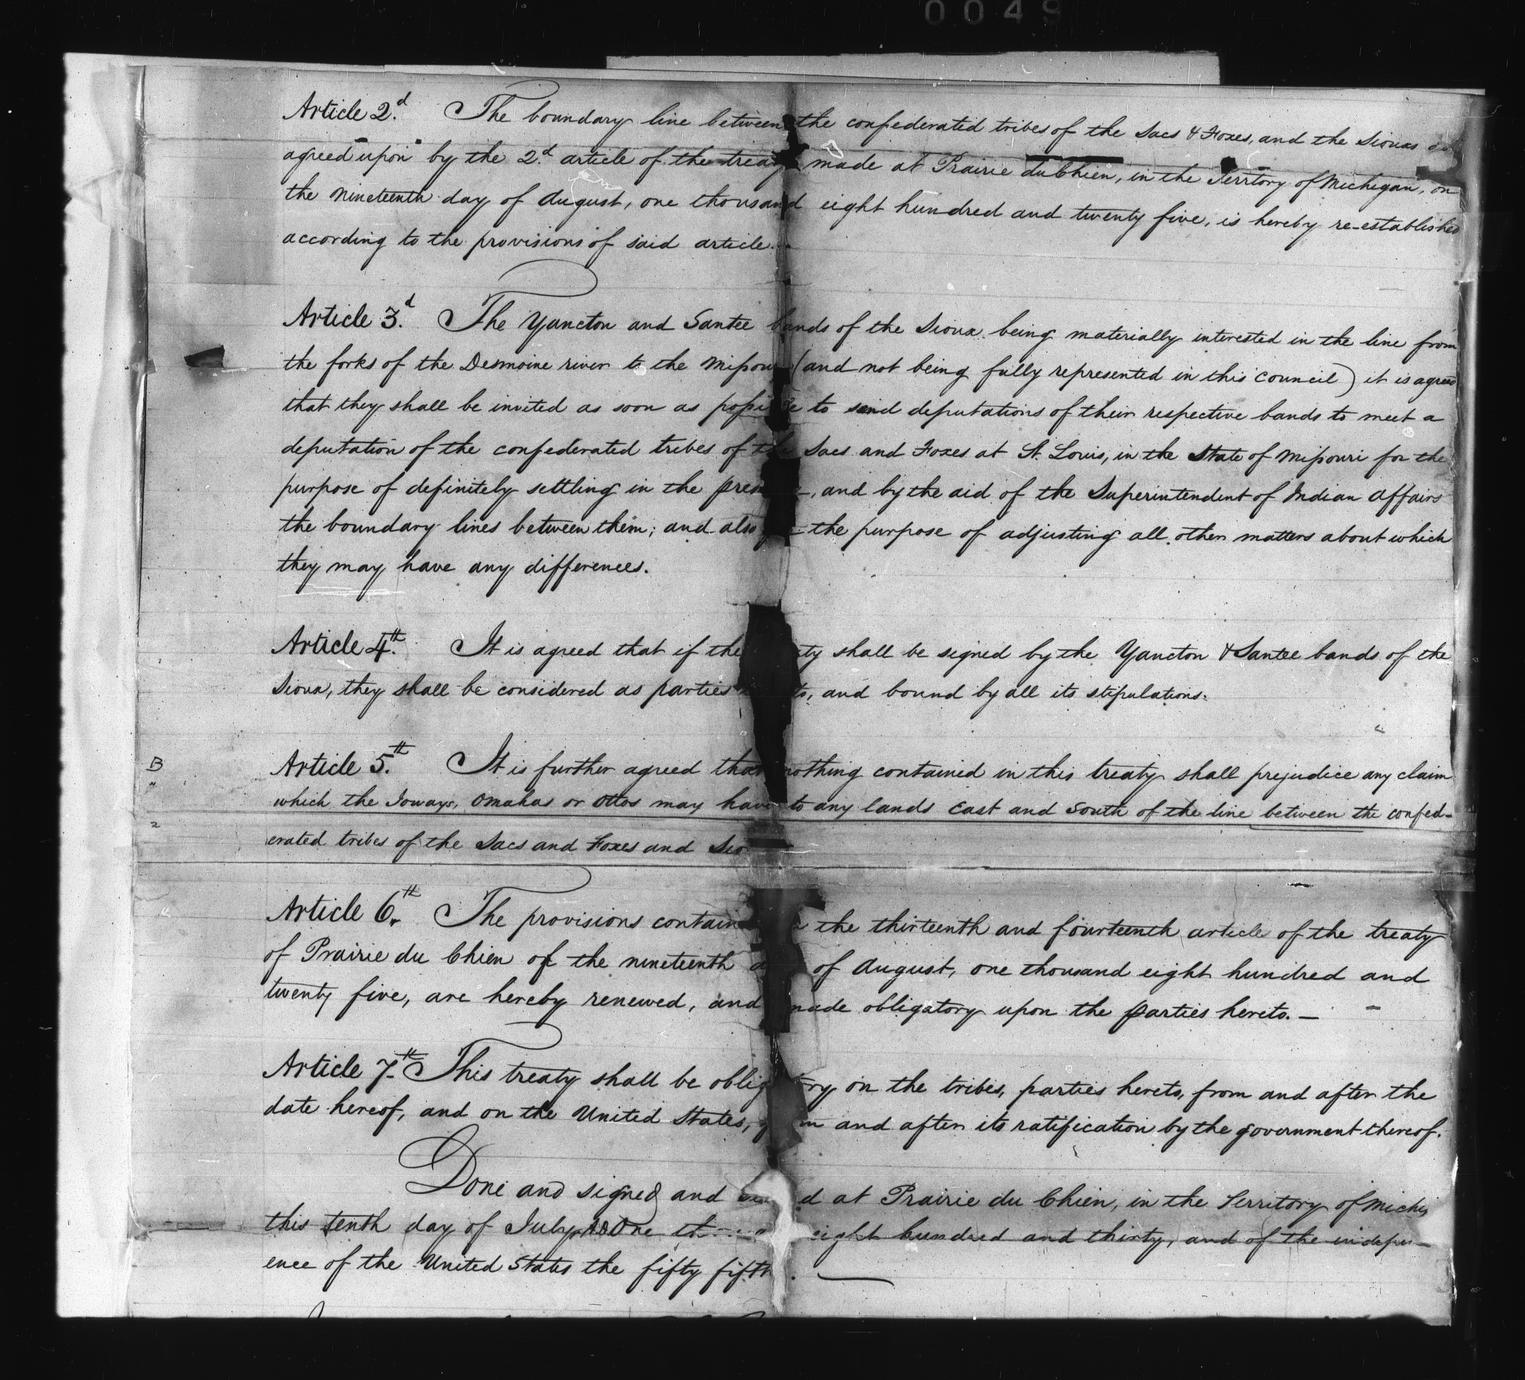 0049
Article 2d. The boundary line between the confederated tribes of the Sacs & Foxes, and the Sioux as
agreed upon by the 2d. article of the treaty made at Prairie du Chien, in the Territory of Michigan, on
the nineteenth day of August, one thousand eight hundred and twenty five, is hereby re-established
according to the provisions of said article.
Article 3d. The Yancton and Santee bands of the Sioux being materially interested in the line from
the forks of the Desmoine river to the Missouri (and not being fully represented in this council) it is agreed
that they shall be invited as soon as possible to send deputations of their respective bands to meet a
deputation of the confederated tribes of the Sacs and Foxes at St. Louis, in the State of Missouri for the
purpose of definitely settling in the presence, and by the aid of the Superintendent of Indian Affairs
the boundary lines between them; and also for the purpose of adjusting all other matters about which
they may have any differences.
Article 4th. It is agreed that if the ty shall be signed by the Yancton & Santee bands of the
Sioux, they shall be considered as parties to, and bound by all its stipulations.
B
Article 5.th It is further agreed that nothing contained in this treaty shall prejudice any claim
which the Ioways, Omahas or Ottos may have to any lands East and South of the line between the confed-
2
erated tribes of the Sacs and Foxes and Sio
Article 6th. The provisions contain the thirteenth and fourteenth article of the treaty
of Prairie du Chien of the nineteenth of August, one thousand eight hundred and
twenty five, are hereby renewed, and made obligatory upon the parties hereto. —
Article 7th. This treaty shall be obligatory on the tribes, parties hereto, from and after the
date hereof, and on the United States, from and after its ratification by the government thereof.
Done and signed and d at Prairie du Chien, in the Territory of Michi
this tenth day of July One th eight hundred and thirty, and of the indepen-
ence of the United States the fifty fifth. —